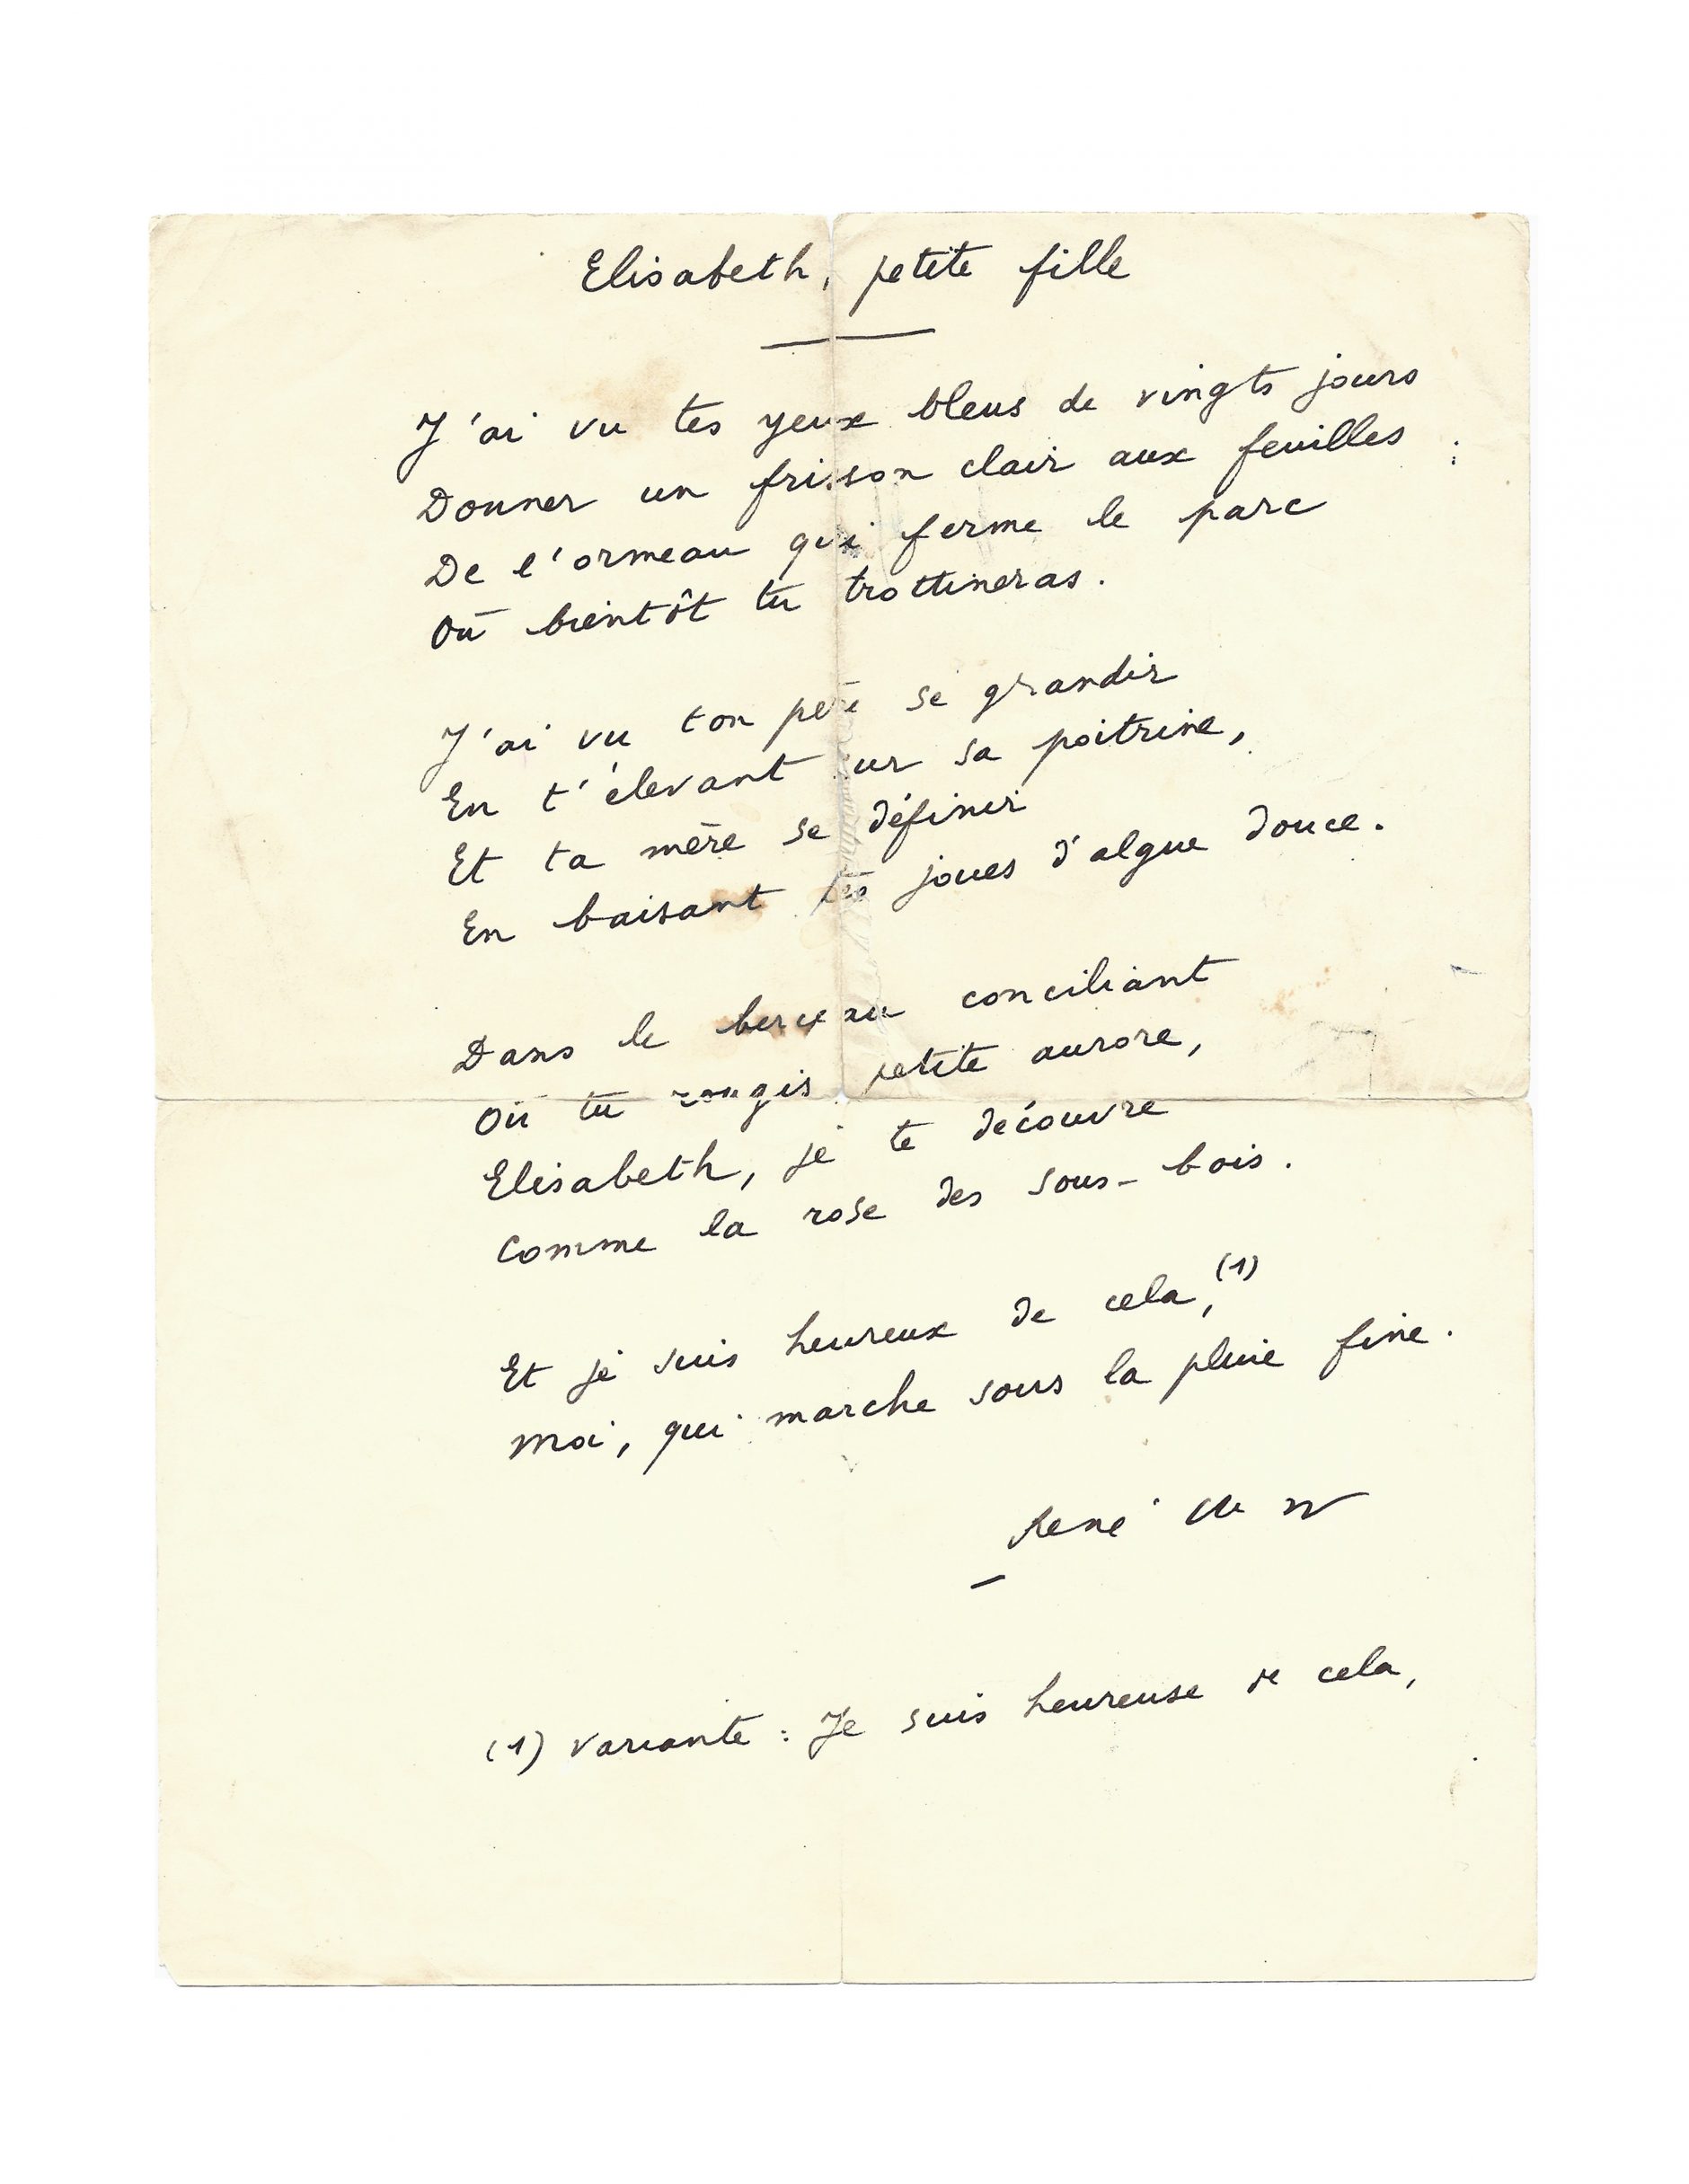 Elisabeth, petite fille
J'ai vu tes yeux bleus de vingts jours
Donner un frisson clair aux feuilles
De l'ormeau qui ferme le parc
Où bientôt tu trottineras.
J'ai vu ton père se grandir
En t'élevant sur sa poitrine,
Et ta mère se définir
En baisant tes joues d'algue douce.
Dans le berceau conciliant
Où tu rougis petite aurore,
Elisabeth, je te découvre
Comme la rose des sous-bois.
Et je suis heureux de cela,(1)
Moi, qui marche sous la pluie fine.
René
(1) variante : Je suis heureuse de cela,